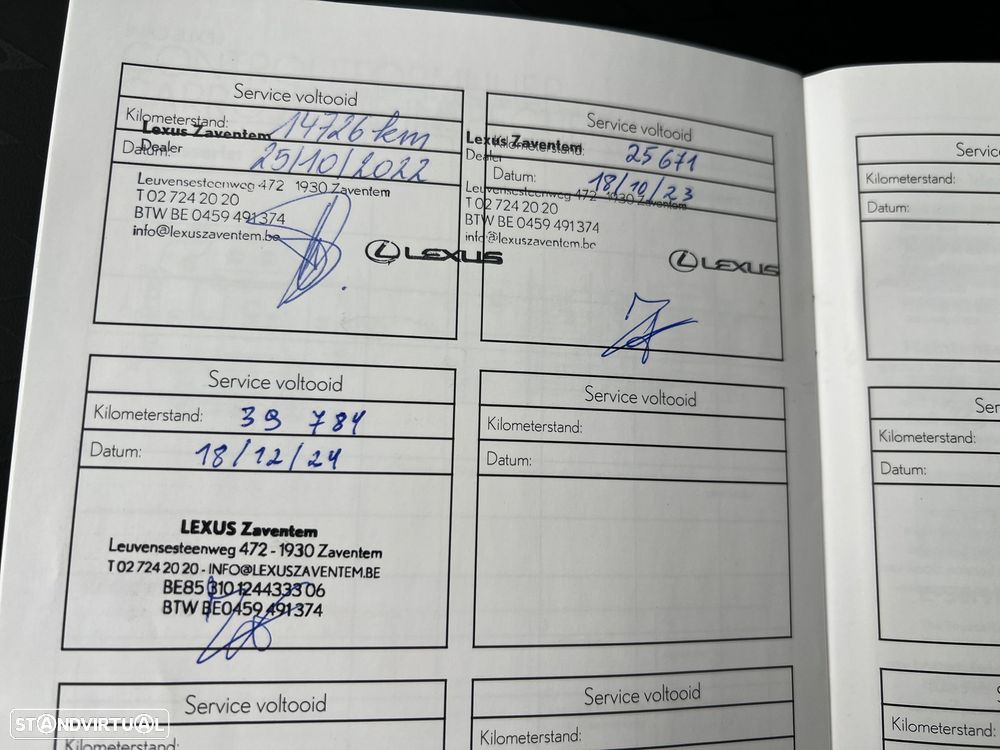 Service voltooid
Kilometerstand: 14726 km
Lexus Zaventem
Dealer
Datum: 25/10/2022
Leuvensesteenweg 472 1930 Zaventem
T 02 724 20 20
BTW BE 0459 491374
info@lexuszaventem.be
LEXUS
Service voltooid
Lexus Zaventem
Kilometerstand: 25671
Dealer
Datum: 18/10/23
Leuvensesteenweg 472 1930 Zaventem
T 02 724 20 20
BTW BE 0459 491374
info@lexuszaventem.be
LEXUS
Service voltooid
Kilometerstand: 39 784
Datum: 18/12/24
LEXUS Zaventem
Leuvensesteenweg 472 - 1930 Zaventem
T 02 724 20 20 - INFO@LEXUSZAVENTEM.BE
BE85 310124433306
BTW BE0459 491374
Service voltooid
Kilometerstand:
Datum:
Service voltooid
Kilometerstand:
Service voltooid
Kilometerstand:
Servic
Kilometerstand:
Datum:
Ser
Kilometerstand:
Datum:
Kilometerstand:
STANDVIRTUAL